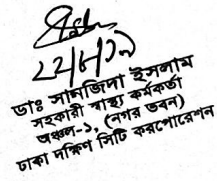 ২২/৮/১৯
ডাঃ সানজিদা ইসলাম
সহকারী স্বাস্থ্য কর্মকর্তা
অঞ্চল-১, (নগর ভবন)
ঢাকা দক্ষিণ সিটি করপোরেশন